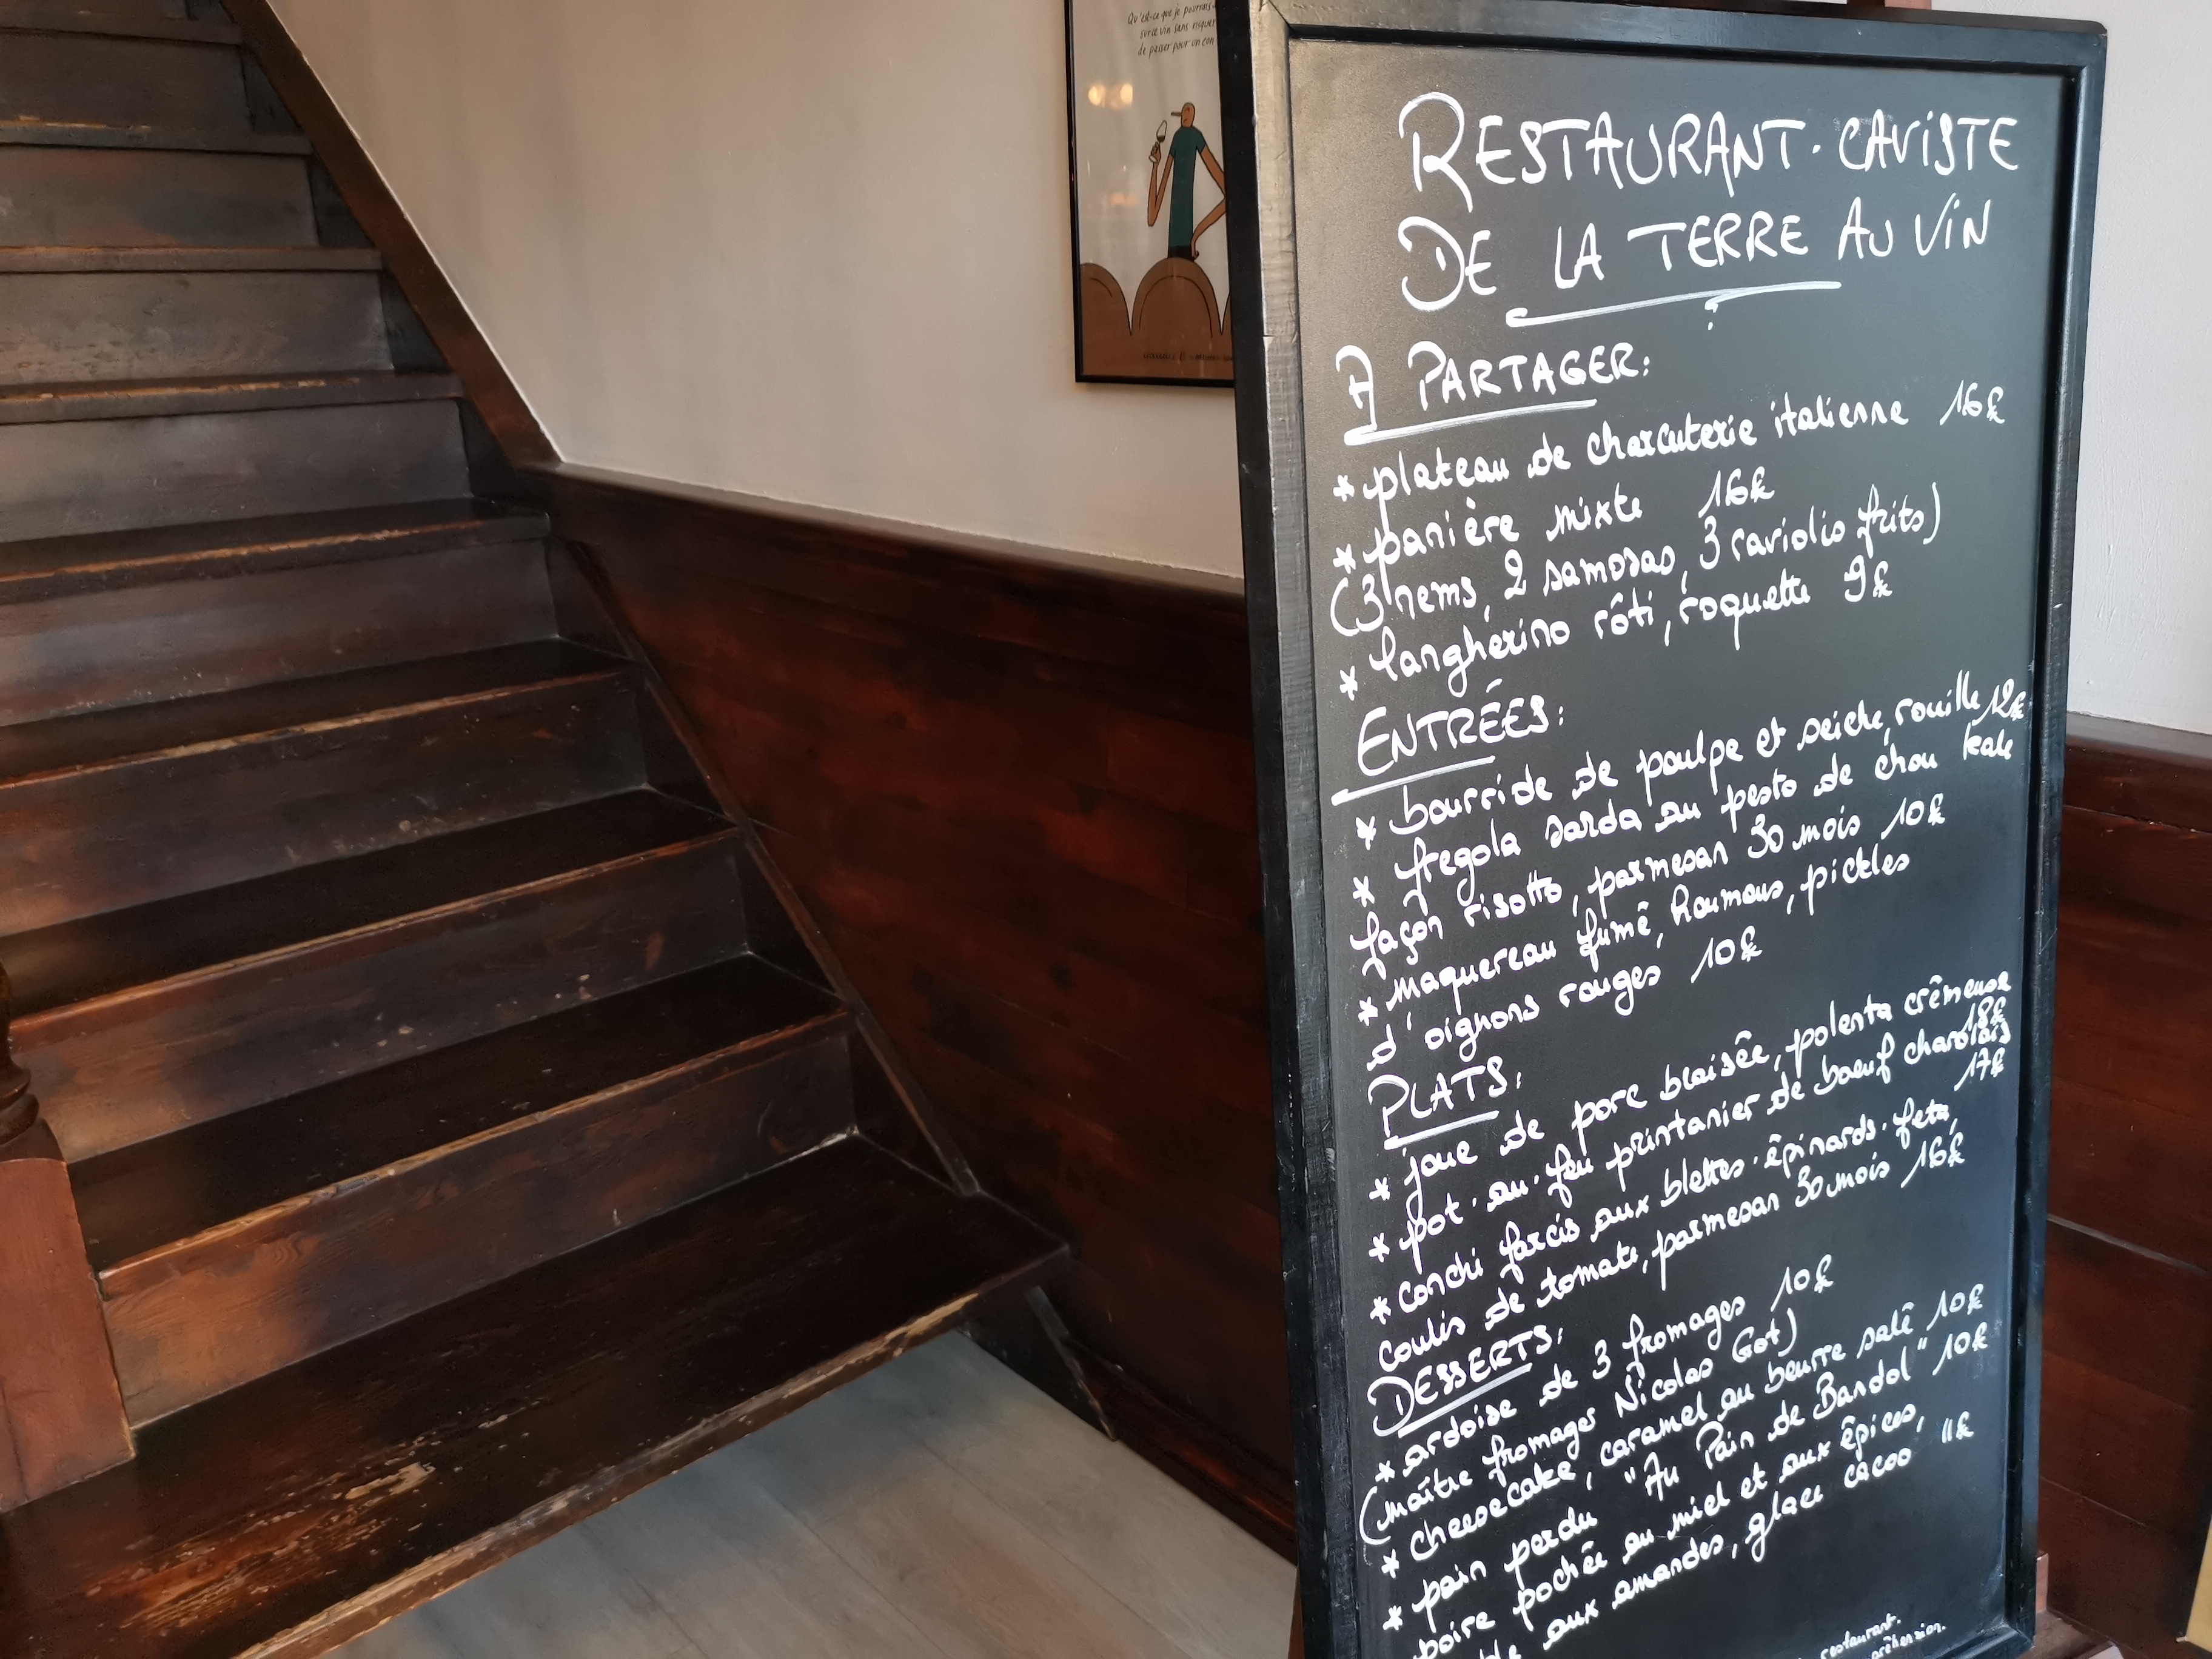 Qu'est-ce que je pourrais
sur ce vin sans risquer
de passer pour un con
RESTAURANT. CAVISTE
DE LA TERRE AU VIN
A PARTAGER:
* plateau de charcuterie italienne 16€
* panière mixte 16€
(3 nems, 2 samosas, 3 raviolis frits)
* langhérino rôti, roquette 9€
ENTRÉES:
* bourride de poulpe et seiche, rouille 12€
* fregola sarda au pesto de chou kale
façon risotto, parmesan 30 mois 10€
* maquereau fumé, houmous, pickles
d'oignons rouges 10€
PLATS:
* joue de porc braisée, polenta crémeuse
18€
* pot.au.feu printanier de boeuf charolais
17€
* conchi farcis aux blettes.épinards.feta,
coulis de tomate, parmesan 30 mois 16€
DESSERTS:
* ardoise de 3 fromages 10€
(maître fromager Nicolas Got)
* cheesecake, caramel au beurre salé 10€
* pain perdu "Au Pain de Bandol" 10€
poire pochée au miel et aux épices,
aux amandes, glace cacao 11€
restaurant.